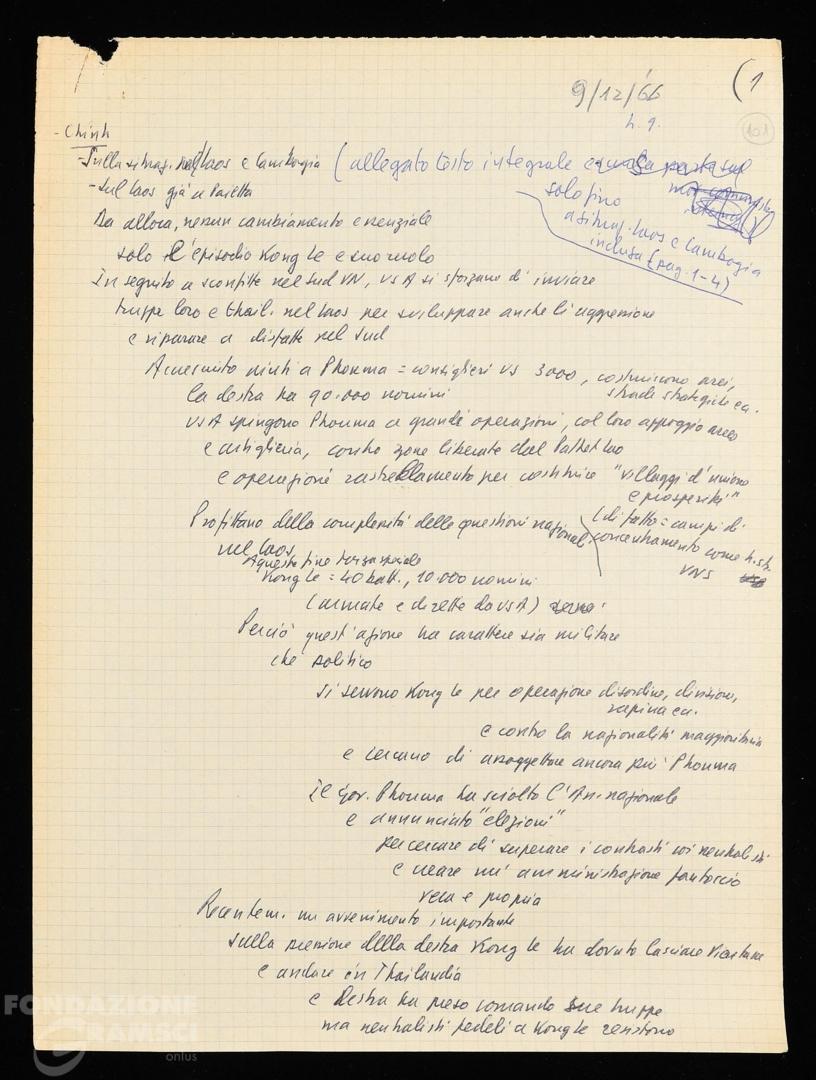 (1
9/12/66
h. 9.
101
- Chinh
- Sulla situaz. nel Laos e Cambogia (allegato testo integrale
solo fino
a situaz. Laos e Cambogia
inclusa (pag. 1-4)
- Sul Laos già a Pajetta
Da allora, nessun cambiamento essenziale
solo l'episodio Kong Le e suo ruolo
In seguito a sconfitte nel Sud VN, USA si sforzano di inviare
truppe loro e thail. nel Laos per sviluppare anche lì aggressione
e riparare a disfatte nel Sud
Accresciuto aiuti a Phouma = consiglieri US 3000, costruiscono aerei,
strade strategiche ec.
La destra ha 90.000 uomini
USA spingono Phouma a grandi operazioni, col loro appoggio aereo
e artiglieria, contro zone liberate dal Pathet Lao
e operazioni rastrellamento per costituire "villaggi d'unione
e prosperità"
(di fatto = campi di
concentramento come h. str.
VNS
Profittano della complessità delle questioni nazionali
nel Laos
A questo fine forza speciale
Kong Le = 40 batt., 10.000 uomini
(armate e dirette da USA)
Perciò quest'azione ha carattere sia militare
che politico
Si servono Kong Le per operazione disordine, divisione,
rapina ec.
e contro la nazionalità maggioritaria
e cercano di assoggettare ancora più Phouma
Il Gov. Phouma ha sciolto l'Ass. nazionale
e annunciato "elezioni"
per cercare di superare i contrasti coi neutralisti
e creare un'amministrazione fantoccio
vera e propria
Recentem. un avvenimento importante
sulla pressione della destra Kong Le ha dovuto lasciare Vientiane
e andare in Thailandia
e Destra ha preso comando sue truppe
ma neutralisti fedeli a Kong Le resistono
FONDAZIONE
GRAMSCI
onlus